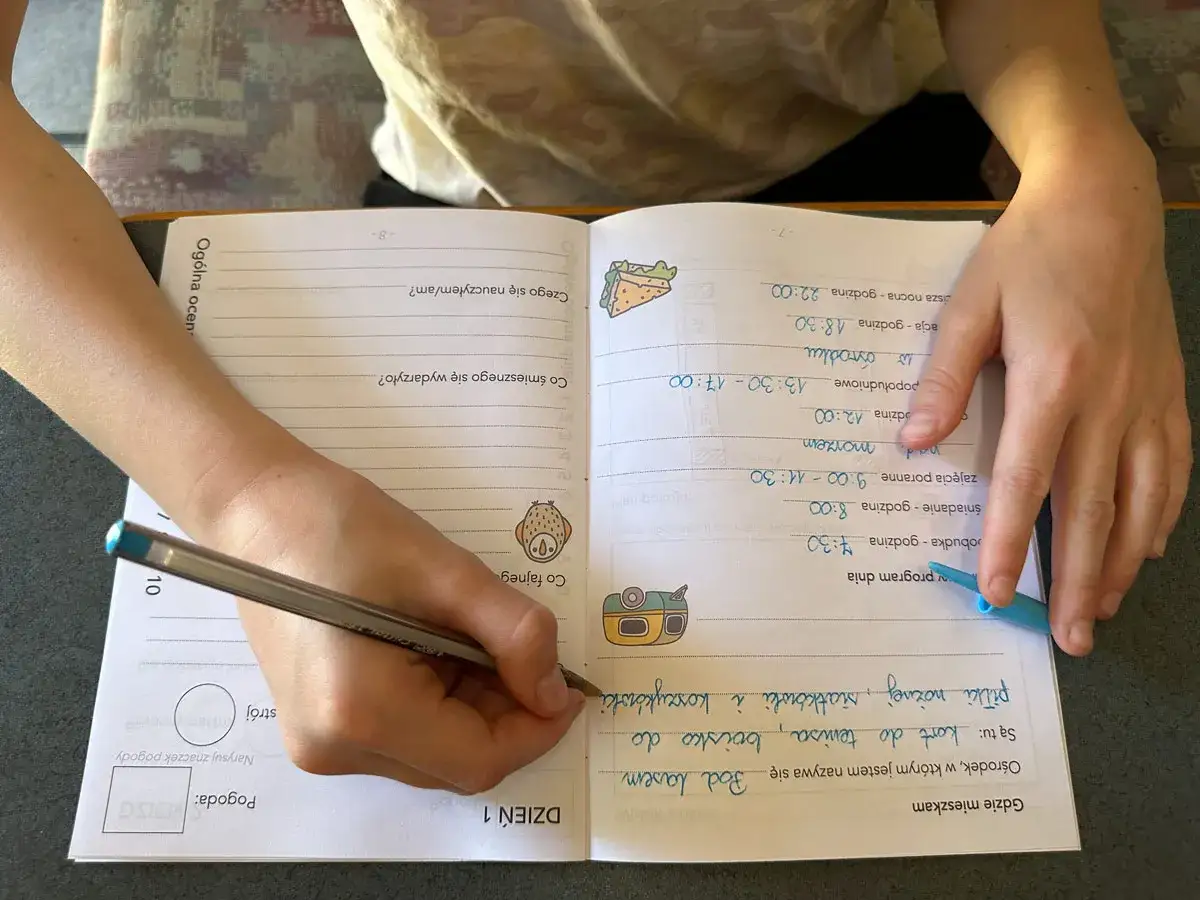 Gdzie mieszkam
Ośrodek, w którym jestem nazywa się Pod Lasem
Są tu: kort do tenisa, boisko do
piłki nożnej, siatkówki i koszykówki
program dnia
obudka - godzina 7:30
śniadanie - godzina 8:00
zajęcia poranne 9:00 - 11:30
morzem
godzina 12:00
popołudniowe 13:30 - 17:00
w ośrodku
acja - godzina 18:30
isza nocna - godzina 22:00
-7-
DZIEŃ 1
Pogoda:
Narysuj znaczek pogody
strój
10
Co fajneg
Co śmiesznego się wydarzyło?
Czego się nauczyłem/am?
Ogólna ocen
-8-